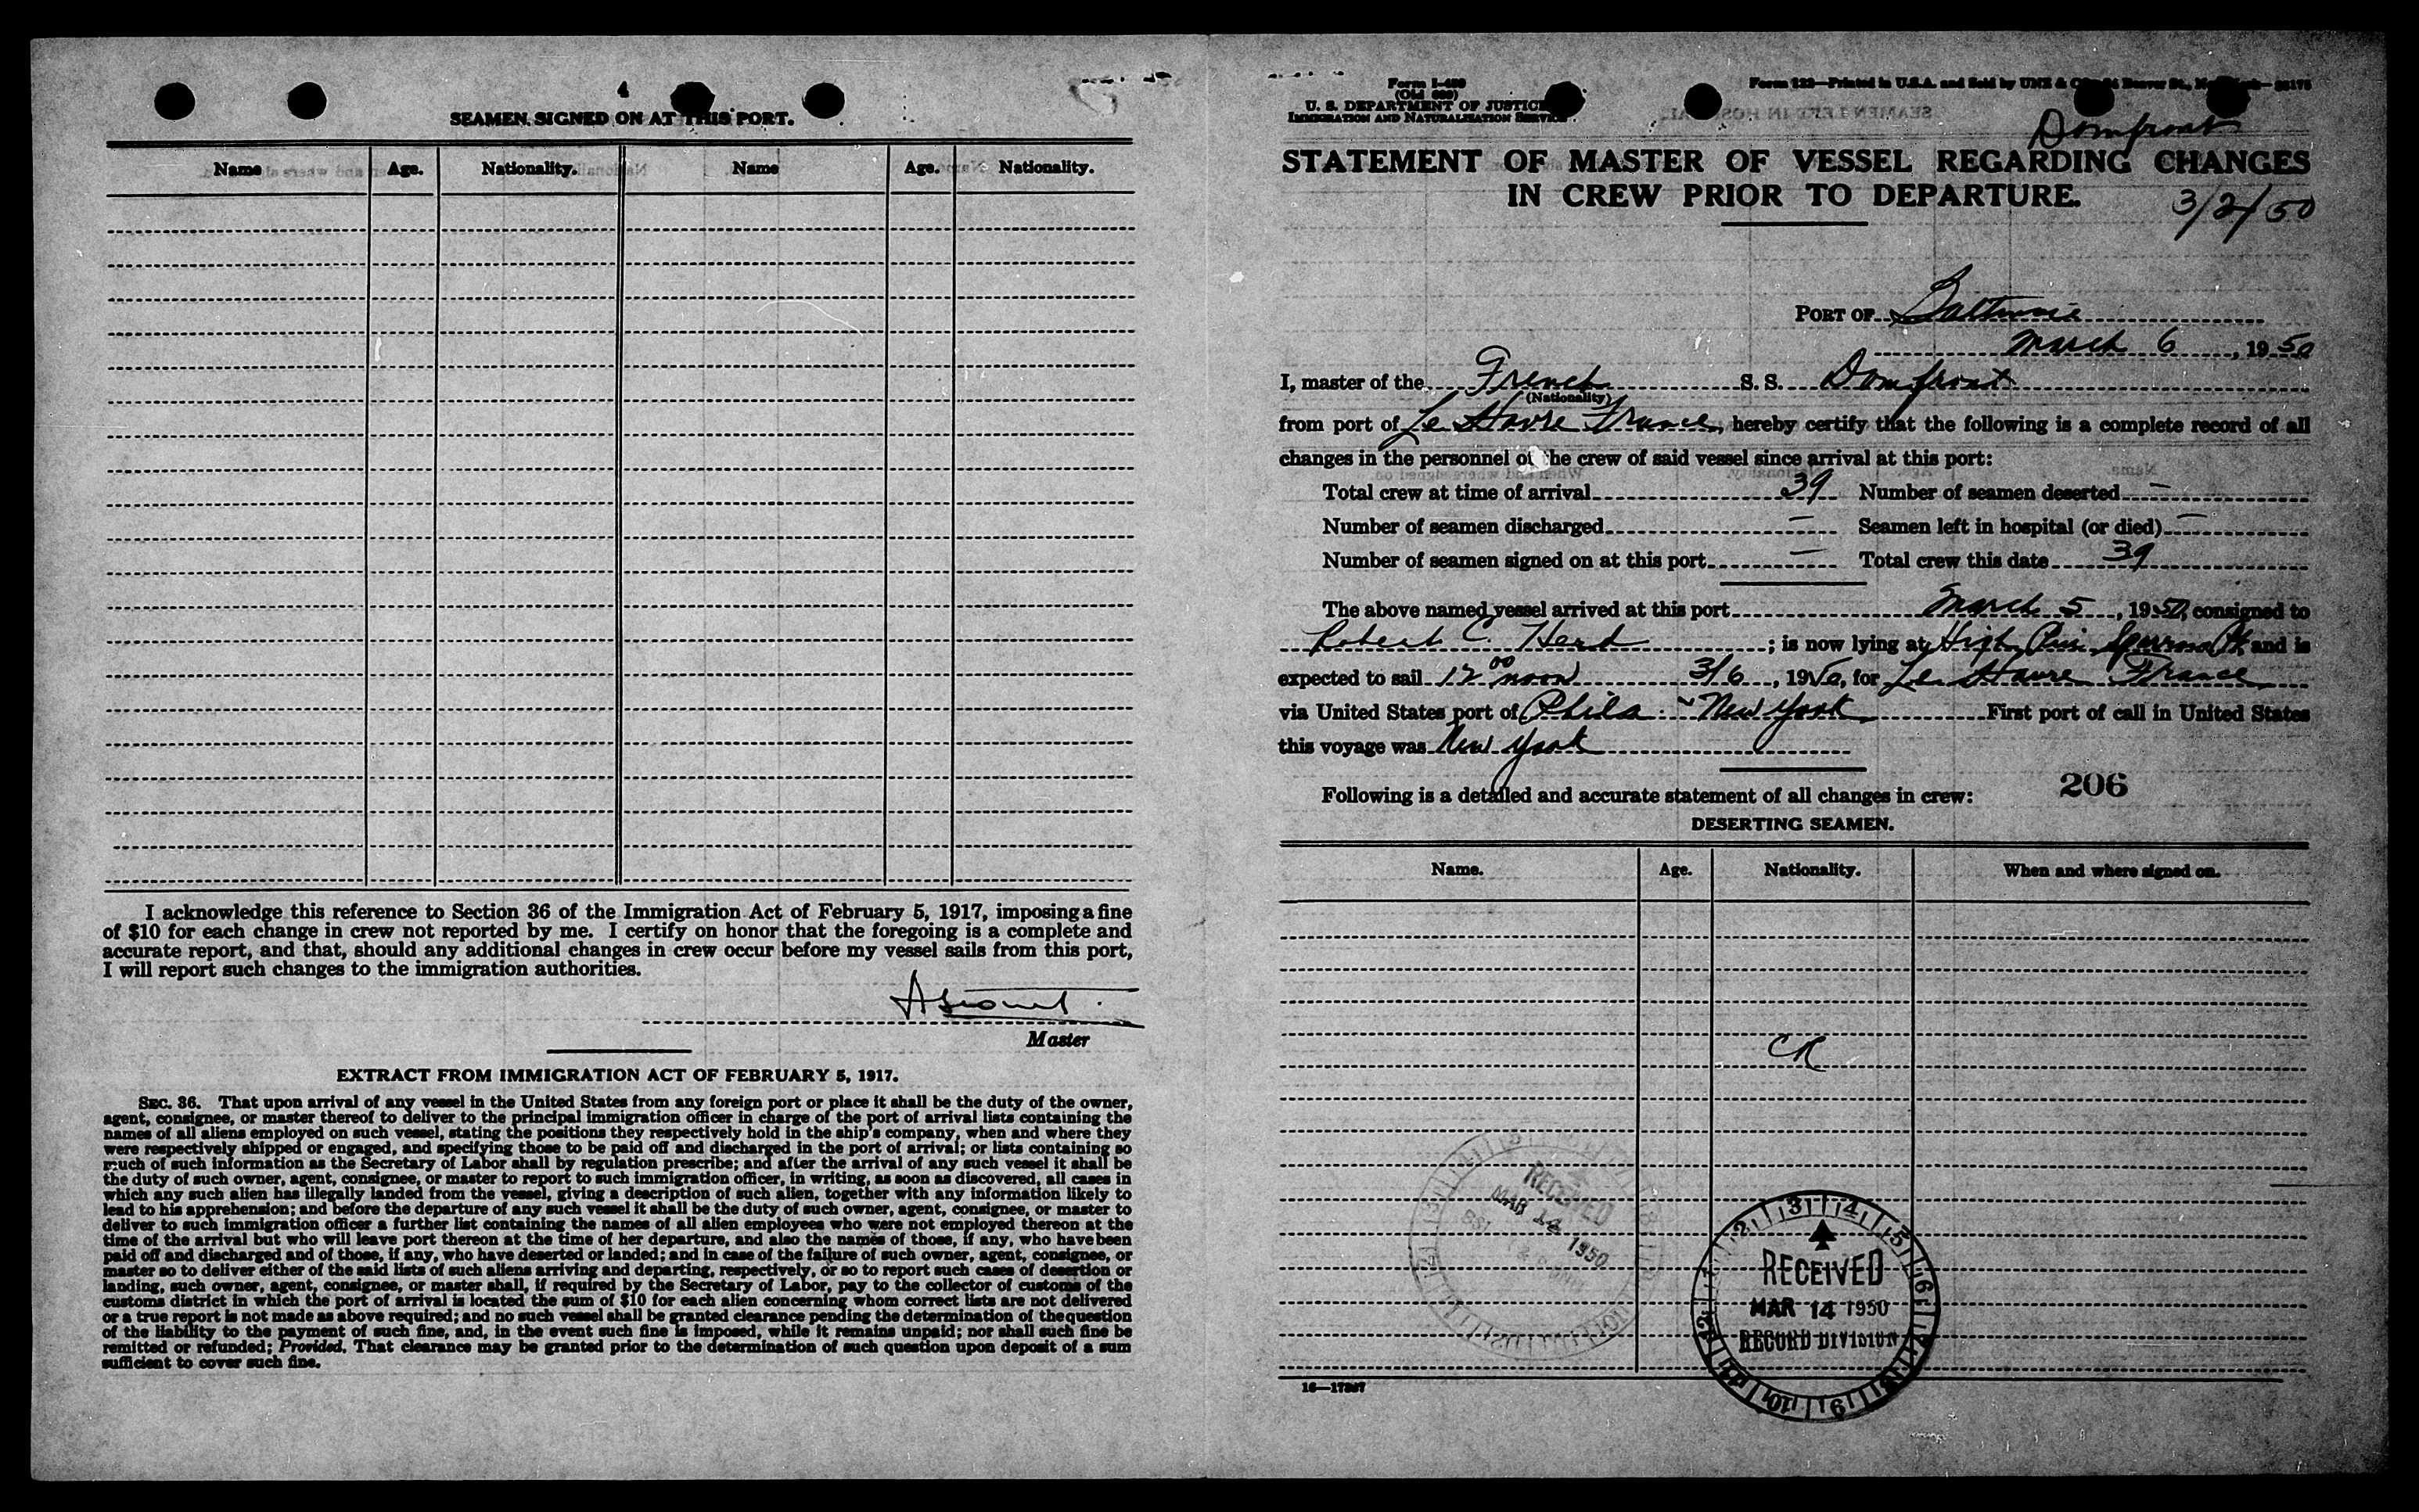 4
SEAMEN SIGNED ON AT THIS PORT.
Name Age. Nationality. Name Age. Nationality.
I acknowledge this reference to Section 36 of the Immigration Act of February 5, 1917, imposing a fine
of $10 for each change in crew not reported by me. I certify on honor that the foregoing is a complete and
accurate report, and that, should any additional changes in crew occur before my vessel sails from this port,
I will report such changes to the immigration authorities.
Master
EXTRACT FROM IMMIGRATION ACT OF FEBRUARY 5, 1917.
SEC. 36. That upon arrival of any vessel in the United States from any foreign port or place it shall be the duty of the owner,
agent, consignee, or master thereof to deliver to the principal immigration officer in charge of the port of arrival lists containing the
names of all aliens employed on such vessel, stating the positions they respectively hold in the ship's company, when and where they
were respectively shipped or engaged, and specifying those to be paid off and discharged in the port of arrival; or lists containing so
much of such information as the Secretary of Labor shall by regulation prescribe; and after the arrival of any such vessel it shall be
the duty of such owner, agent, consignee, or master to report to such immigration officer, in writing, as soon as discovered, all cases in
which any such alien has illegally landed from the vessel, giving a description of such alien, together with any information likely to
lead to his apprehension; and before the departure of any such vessel it shall be the duty of such owner, agent, consignee, or master to
deliver to such immigration officer a further list containing the names of all alien employees who were not employed thereon at the
time of the arrival but who will leave port thereon at the time of her departure, and also the names of those, if any, who have been
paid off and discharged and of those, if any, who have deserted or landed; and in case of the failure of such owner, agent, consignee, or
master so to deliver either of the said lists of such aliens arriving and departing, respectively, or so to report such cases of desertion or
landing, such owner, agent, consignee, or master shall, if required by the Secretary of Labor, pay to the collector of customs of the
customs district in which the port of arrival is located the sum of $10 for each alien concerning whom correct lists are not delivered
or a true report is not made as above required; and no such vessel shall be granted clearance pending the determination of the question
of the liability to the payment of such fine, and, in the event such fine is imposed, while it remains unpaid; nor shall such fine be
remitted or refunded; Provided, That clearance may be granted prior to the determination of such question upon deposit of a sum
sufficient to cover such fine.
Form I-489
U. S. DEPARTMENT OF JUSTICE
IMMIGRATION AND NATURALIZATION SERVICE
Form 122—Printed in U.S.A. and Sold by UNZ & Beaver St.,
Domfront
STATEMENT OF MASTER OF VESSEL REGARDING CHANGES
IN CREW PRIOR TO DEPARTURE.
3/2/50
PORT OF Baltimore
March 6, 1950
I, master of the French S. S. Domfront
(Nationality)
from port of Le Havre France, hereby certify that the following is a complete record of all
changes in the personnel of the crew of said vessel since arrival at this port:
Total crew at time of arrival 39 Number of seamen deserted —
Number of seamen discharged — Seamen left in hospital (or died) —
Number of seamen signed on at this port — Total crew this date 39
The above named vessel arrived at this port March 5, 1950, consigned to
Robert C. Herd; is now lying at High Pier Sparrows Pt and is
expected to sail 12 00 noon 3/6, 1950, for Le Havre France
via United States port of Phila. - New York First port of call in United States
this voyage was New York
206
Following is a detailed and accurate statement of all changes in crew:
DESERTING SEAMEN.
Name. Age. Nationality. When and where signed on.
CR
RECEIVED
MAR 14 1950
RECEIVED
MAR 14 1950
RECORD DIVISION